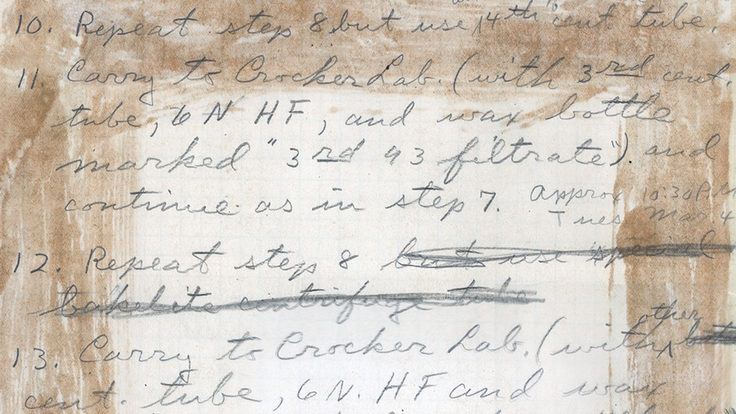 10. Repeat step 8 but use 4th cent tube.
11. Carry to Crocker Lab. (with 3rd cent.
tube, 6 N HF, and wax bottle
marked "3rd 93 filtrate") and
continue as in step 7. approx 10:30 P.M
Tues Mar 4
12. Repeat step 8 but use special
bakelite centrifuge tube
13. Carry to Crocker Lab. (with other
cent. tube, 6 N. HF and wax